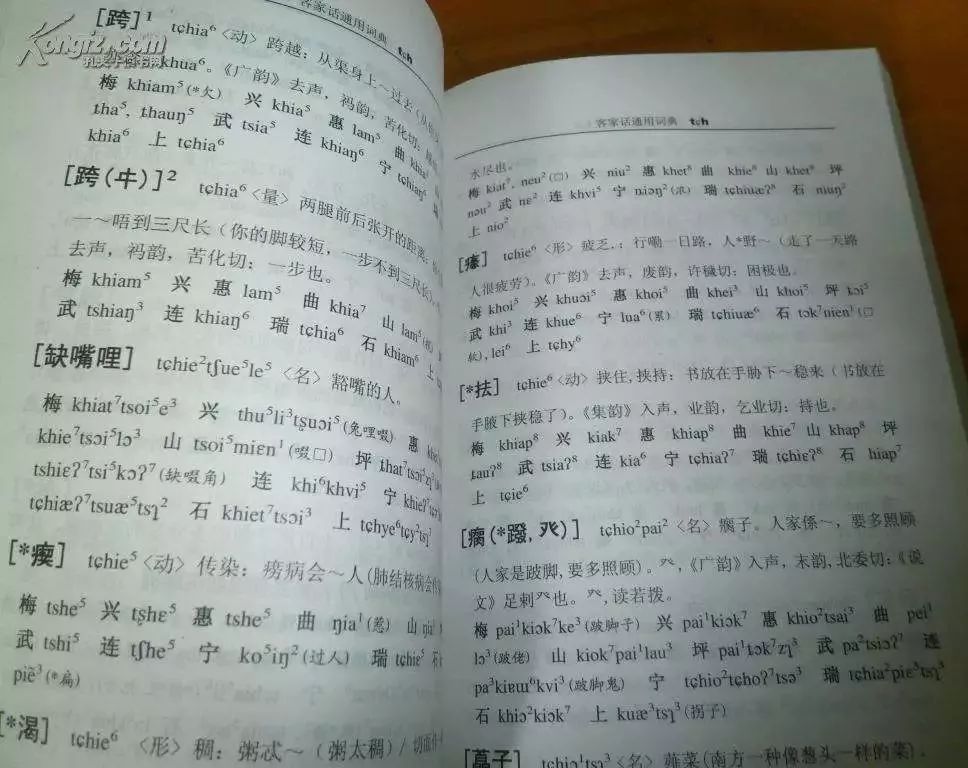 Kongfz.com
孔夫子旧书网
客家话通用词典 tɕh
[跨]¹ tɕhia⁶〈动〉跨越：从渠身上～过去
khua⁶。《广韵》去声，祃韵，苦化切：
梅 khiam⁵(*欠) 兴 khia⁵ 惠 lam⁵ 曲 khia⁷
tha⁵, thauŋ⁵ 武 tsia⁵ 连 khiaŋ⁶ 宁 tɕhiaŋ
khia⁶ 上 tɕhia⁶
[跨(㐄)]² tɕhia⁶〈量〉两腿前后张开的距离：
一～唔到三尺长（你的脚较短，一步不到三尺长）。
去声，祃韵，苦化切：一步也。
梅 khiam⁵ 兴 惠 lam⁵ 曲 khia⁷ 山 lam⁵
武 tshiaŋ³ 连 khiaŋ⁶ 瑞 tɕhia⁶ 石 khiam⁶ 上
[缺嘴哩] tɕhie²tʃue⁵le⁵〈名〉豁嘴的人。
梅 khiat⁷tsoi⁵e³ 兴 thu⁵li³tʂuɔi⁵(兔哩啜) 惠
khie⁷tsɔi⁵lɔ³ 山 tsoi⁵miɛn¹(啜□) 坪 that⁷tsɔi⁵
tshiɛʔ⁷tsi⁵kɔʔ⁷(缺啜角) 连 khi⁶khvi⁵ 宁 khieʔ⁷
tɕhiæʔ⁷tsuæ⁵tsʅ² 石 khiet⁷tsɔi³ 上 tɕhye⁶tɕy²tsʅ
[*瘈] tɕhie⁵〈动〉传染：痨病会～人(肺结核病会传
梅 tshe⁵ 兴 tʂhɛ⁵ 惠 tshe⁵ 曲 ŋia¹(惹) 山 ŋia¹
武 tshi⁵ 连 tʃhe⁵ 宁 ko⁵iŋ²(过人) 瑞 tɕhie⁵ 石
piẽ³(*扁)
[*渴] tɕhie⁶〈形〉稠：粥忒～（粥太稠）/切面
客家话通用词典 tɕh
水尽也。
梅 kiat⁷, neu²(□) 兴 niu² 惠 khet⁸ 曲 khie⁸ 山 khet⁸ 坪
nəu² 武 nɛ² 连 khvi⁵ 宁 niəŋ²(浓) 瑞 tɕhiuæʔ⁸ 石 niuŋ²
上 nio²
[瘃] tɕhie⁶〈形〉疲乏,：行嘞一日路，人*野～（走了一天路
人很疲劳)。《广韵》去声，废韵，许秽切：困极也。
梅 khoi⁵ 兴 khuɔi⁵ 惠 khoi⁵ 曲 khei³ 山 khoi⁵ 坪 kɔi⁵
武 khi³ 连 khue⁶ 宁 lua⁶(累) 瑞 tɕhiuæ⁶ 石 tɔk⁷nien¹(□
), lei⁶ 上 tɕhy⁶
[*抾] tɕhie⁶〈动〉挟住,挟持：书放在手胁下～稳来（书放在
手腋下挟稳了)。《集韵》入声，业韵，乞业切：持也。
梅 khiap⁸ 兴 kiak⁷ 惠 khiap⁸ 曲 khie⁷ 山 khap⁸ 坪
ȶauʔ⁸ 武 tsiaʔ⁸ 连 kia⁶ 宁 tɕhiaʔ⁷ 瑞 tɕhiɛʔ⁸ 石 hiap⁷
上 tɕie⁶
[瘸(*蹳，癶)] tɕhio²pai²〈名〉瘸子。人家係～，要多照顾
(人家是跛脚,要多照顾)。癶,《广韵》入声，末韵,北委切:《说
文》足剌癶也。癶,读若拨。
梅 pai¹kiɔk⁷ke³(跛脚子) 兴 pai¹kiɔk⁷ 惠 khio²tsai³ 曲 pei¹
lɔ³(跛佬) 山 kiok⁷pai¹lau³ 坪 pai¹ȶɔk⁷zʅ³ 武 pa²tsiɔʔ⁷ 连
pa³kiɐɯ⁶kvi³(跛脚鬼) 宁 tɕhio²tɕhoʔ⁷tsə³ 瑞 tɕhia²piɛ³tsʅ³
石 khiɔ²kiɔk⁷ 上 kuæ³tsʅ³(拐子)
[藠子] tɕhiɔ¹tsʅ³〈名〉薤菜(南方一种像葱头一样的菜)。